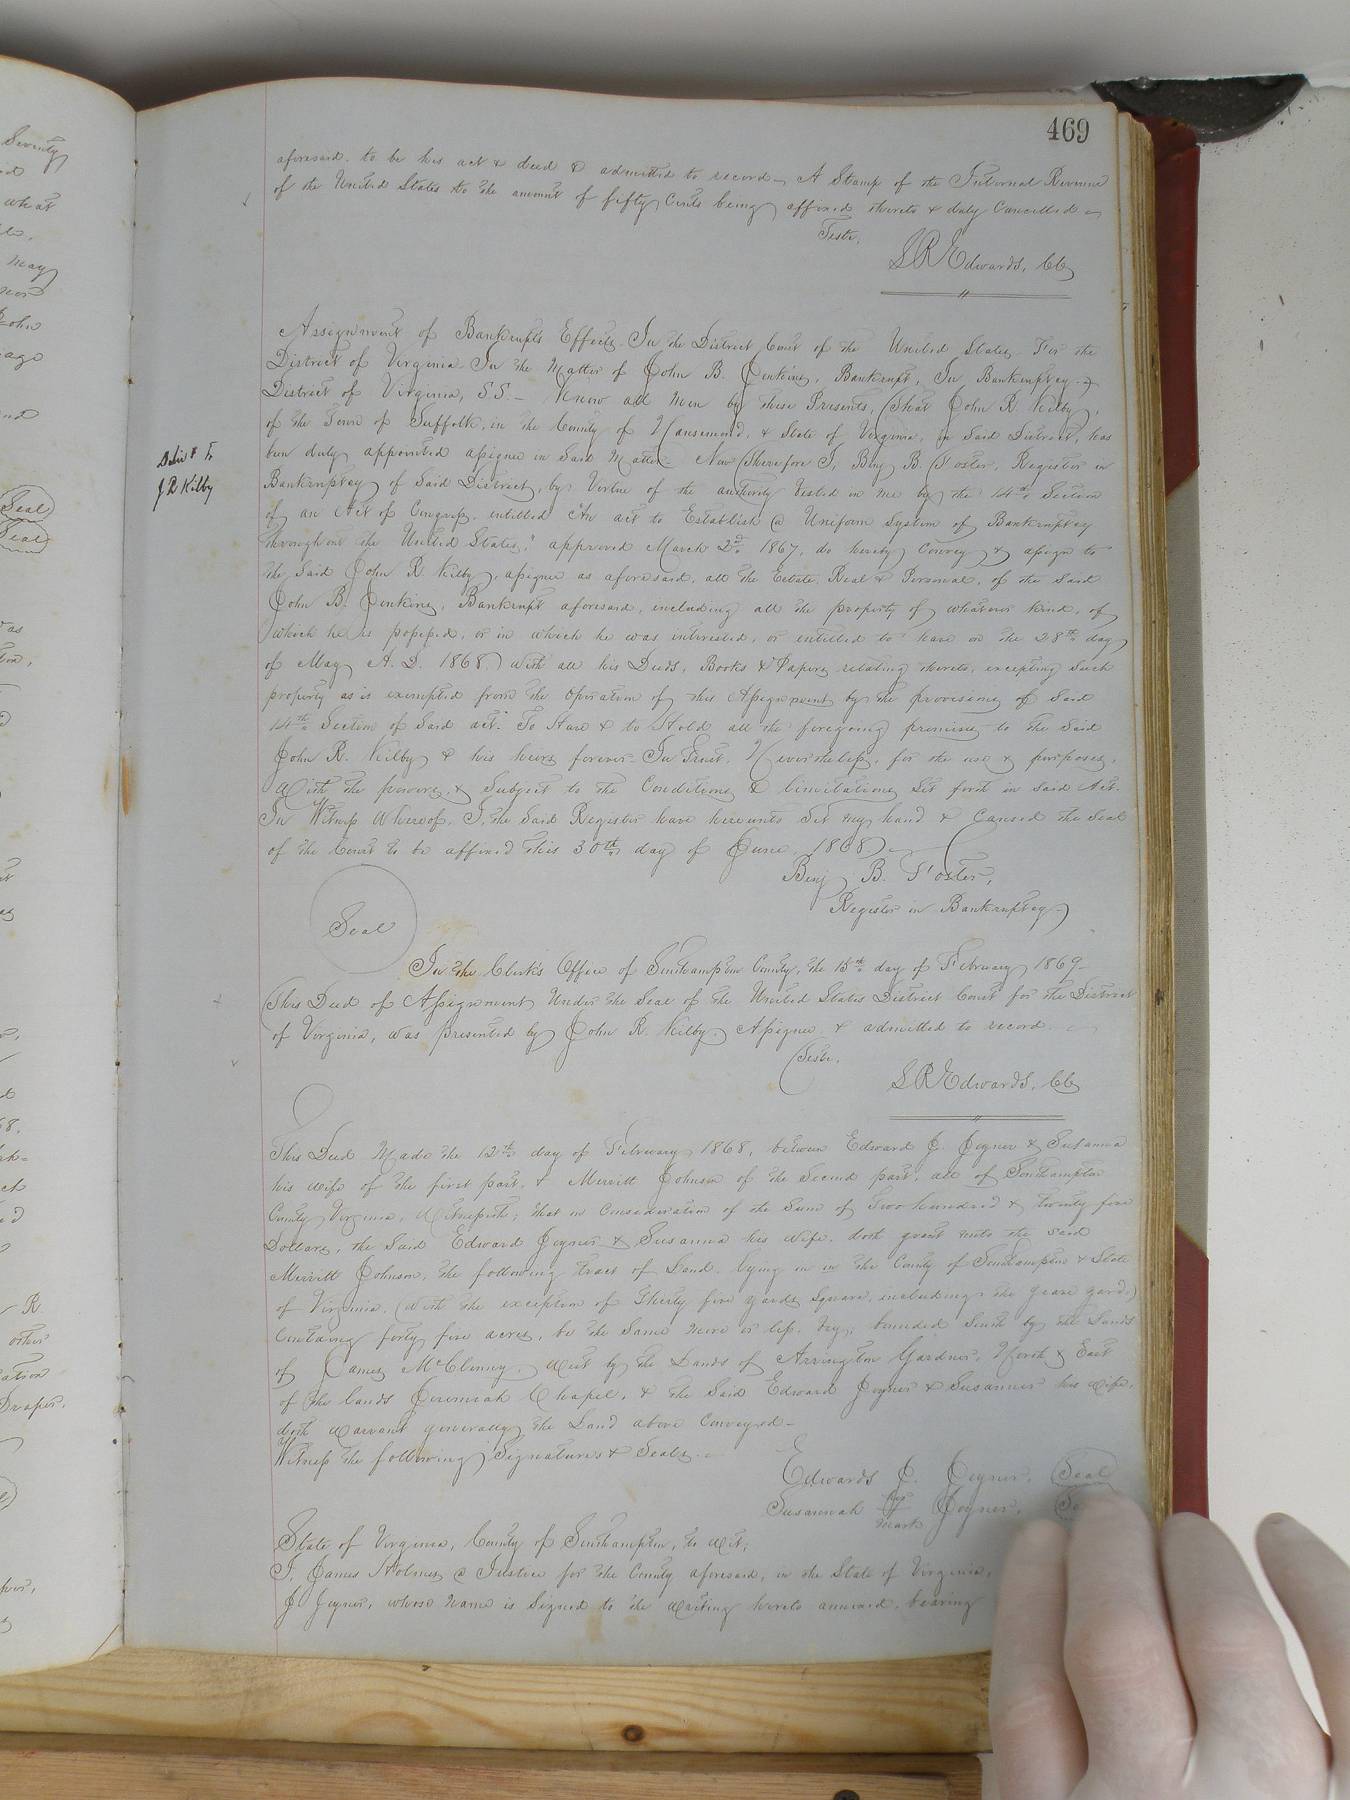 469
aforesaid. to be his act & deed & admitted to record – A Stamp of the Internal Revenue
of the United States to the amount of fifty Cents being affixed thereto & duly Cancelled –
Teste,
L R Edwards, CC
Assignment of Bankrupts Effects. In the District Court of the United States. For the
District of Virginia In the Matter of John B. Jenkins, Bankrupt, In Bankruptcy. –
District of Virginia, S.S. – Know all Men by these Presents, That John R. Kilby,
of the Town of Suffolk, in the County of Nansemond, & State of Virginia, in Said District, has
been duly appointed assignee in Said Matter – Now Therefore I, Benj B. Foster, Register in
Bankruptcy of Said District, by Virtue of the authority Vested in me by the 14th Section
of an Act of Congress. entitled "An act to Establish a Uniform System of Bankruptcy
throughout the United States," approved March 2nd 1867, do hereby Convey & assign to
the Said John R. Kilby, assignee as aforesaid, all the Estate Real & Personal, of the Said
John B. Jenkins, Bankrupt aforesaid, including all the property of whatever kind, of
which he is possessed, or in which he was interested, or entitled to have on the 28th day
of May A.D. 1868, With all his Deeds, Books & Papers relating thereto, excepting Such
property as is exempted from the Operation of this Assignment by the provisions of Said
14th Section of Said act. To Have & to Hold all the foregoing premises to the Said
John R. Kilby & his heirs forever – In Trust, Nevertheless, for the use & purposes,
With the powers, & Subject to the Conditions & limitations Set forth in Said Act.
In Witness Whereof, I, the Said Register have hereunto Set my hand & Caused the Seal
of the Court to be affixed this 30th day of June 1868 –
Delivd To
J R Kilby
Benj B. Foster,
Register in Bankruptcy –
Seal
In the Clerk's Office of Southampton County, the 15th day of February 1869 –
This Deed of Assignment Under the Seal of the United States District Court for the District
of Virginia, was presented by John R. Kilby, Assignee & admitted to record.
Teste,
L R Edwards, CC
This Deed Made the 12th day of February 1868, between Edward J. Joyner & Susanna
his wife of the first part, & Merritt Johnson of the Second part, all of Southampton
County Virginia, Witnesseth; that in Consideration of the Sum of Two hundred & twenty five
Dollars, the Said Edward Joyner & Susanna his wife. doth grant unto the said
Merritt Johnson, the following tract of Land. lying in in the County of Southampton & State
of Virginia, (With the exception of Thirty five yards Square, including the grave yard,)
Containing forty five acres, be the Same more or less, Viz; bounded South by the Lands
of James McClenny, West by the Lands of Arrington Gardner, North & East
of the lands Jeremiah Chapel, & the Said Edward Joyner & Susanner his wife,
doth warrant generally the Land above Conveyed –
Witness the following Signatures & Seals –
Edwards J. Joyner, Seal
Susannah her mark Joyner,
State of Virginia, County of Southampton, to Wit;
I, James Holmes a Justice for the County aforesaid, in the State of Virginia,
J. Joyner, whose name is Signed to the Writing hereto annexed, bearing